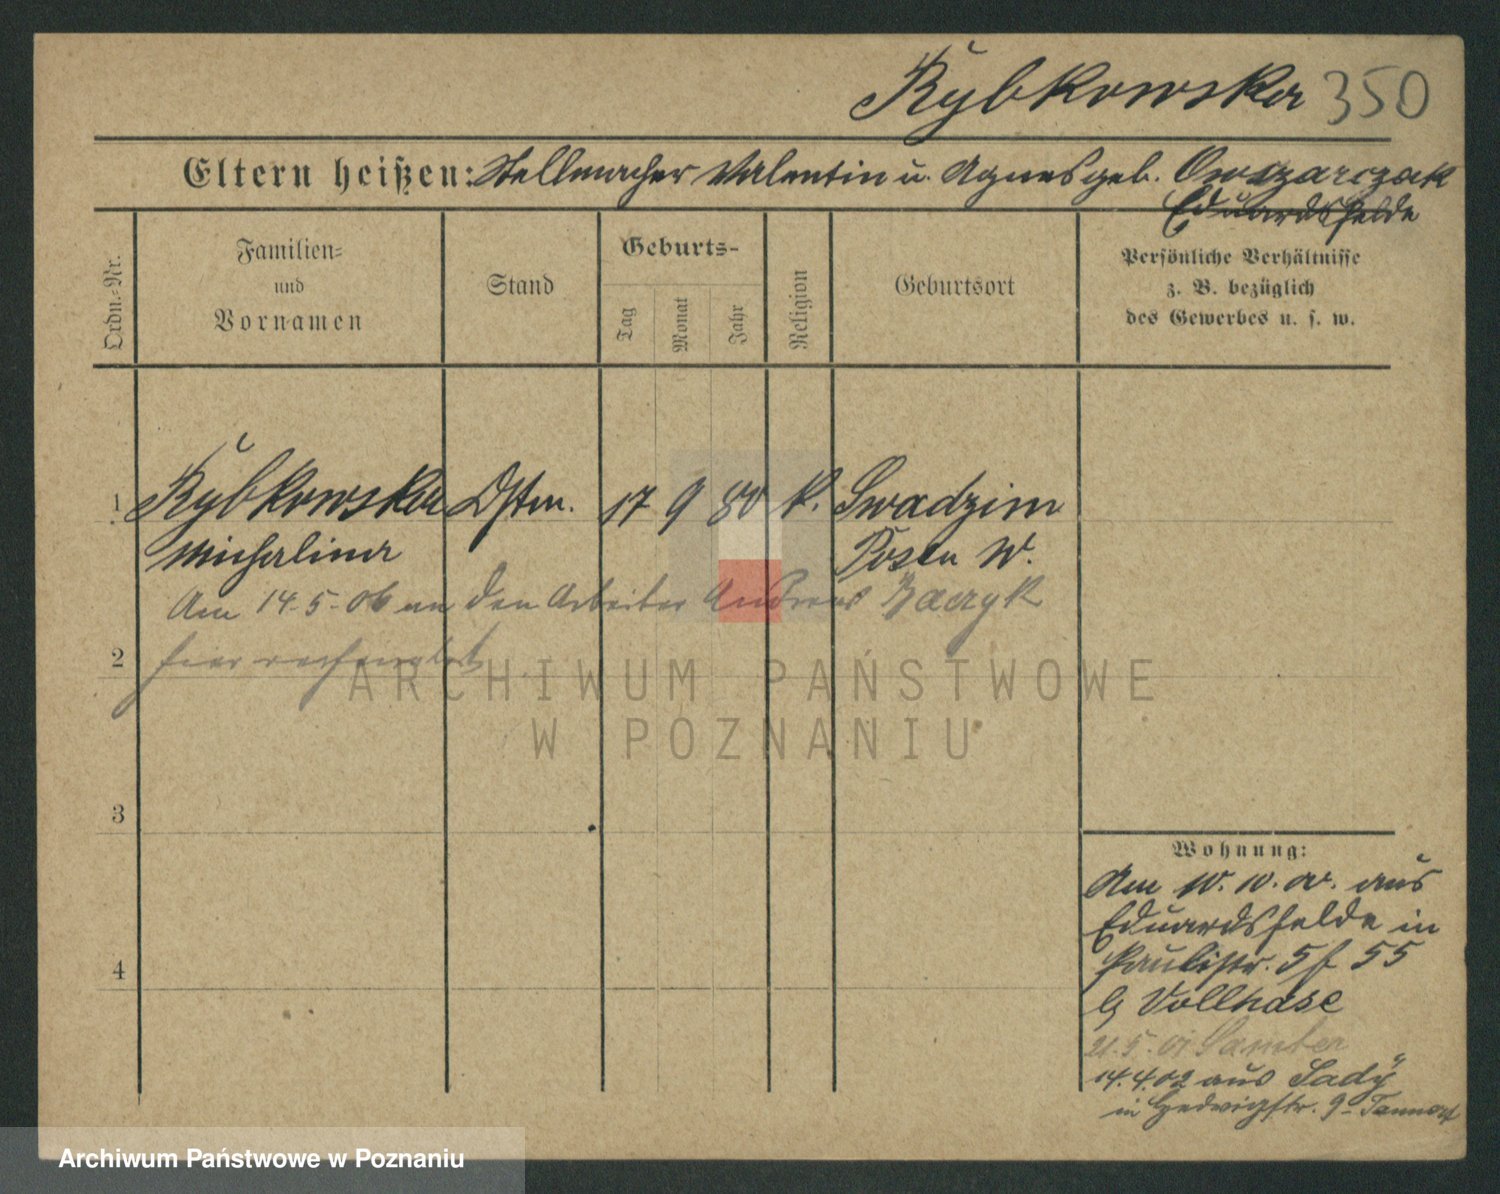 Rybkowska 350
Eltern heißen: Stellmacher Valentin u. Agnes geb. Owczarczak
Eduardsfelde
Ordn.-Nr.
Familien-
und
Vornamen
Stand
Geburts-
Tag
Monat
Jahr
Religion
Geburtsort
Persönliche Verhältnisse
z. B. bezüglich
des Gewerbes u. s. w.
1 Rybkowska 17 9 80 k. Swadzim
Michalina Posen W.
Am 14.5.06 an den Arbeiter Andreas
2 hier
ARCHIWUM PAŃSTWOWE
W POZNANIU
3
4
Wohnung:
Am 10.10.00. aus
Eduardsfelde in
Paulistr. 5 f 55
b Vollhase
21.5.01 Samter
14.4.02 aus Sady
in Hedwigstr. 9
Archiwum Państwowe w Poznaniu